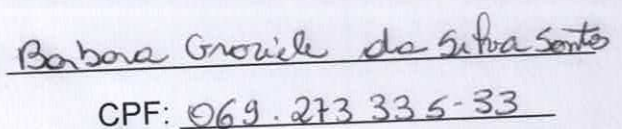 Barbara Graziele da Silva Santos
CPF: 069.273 335-33